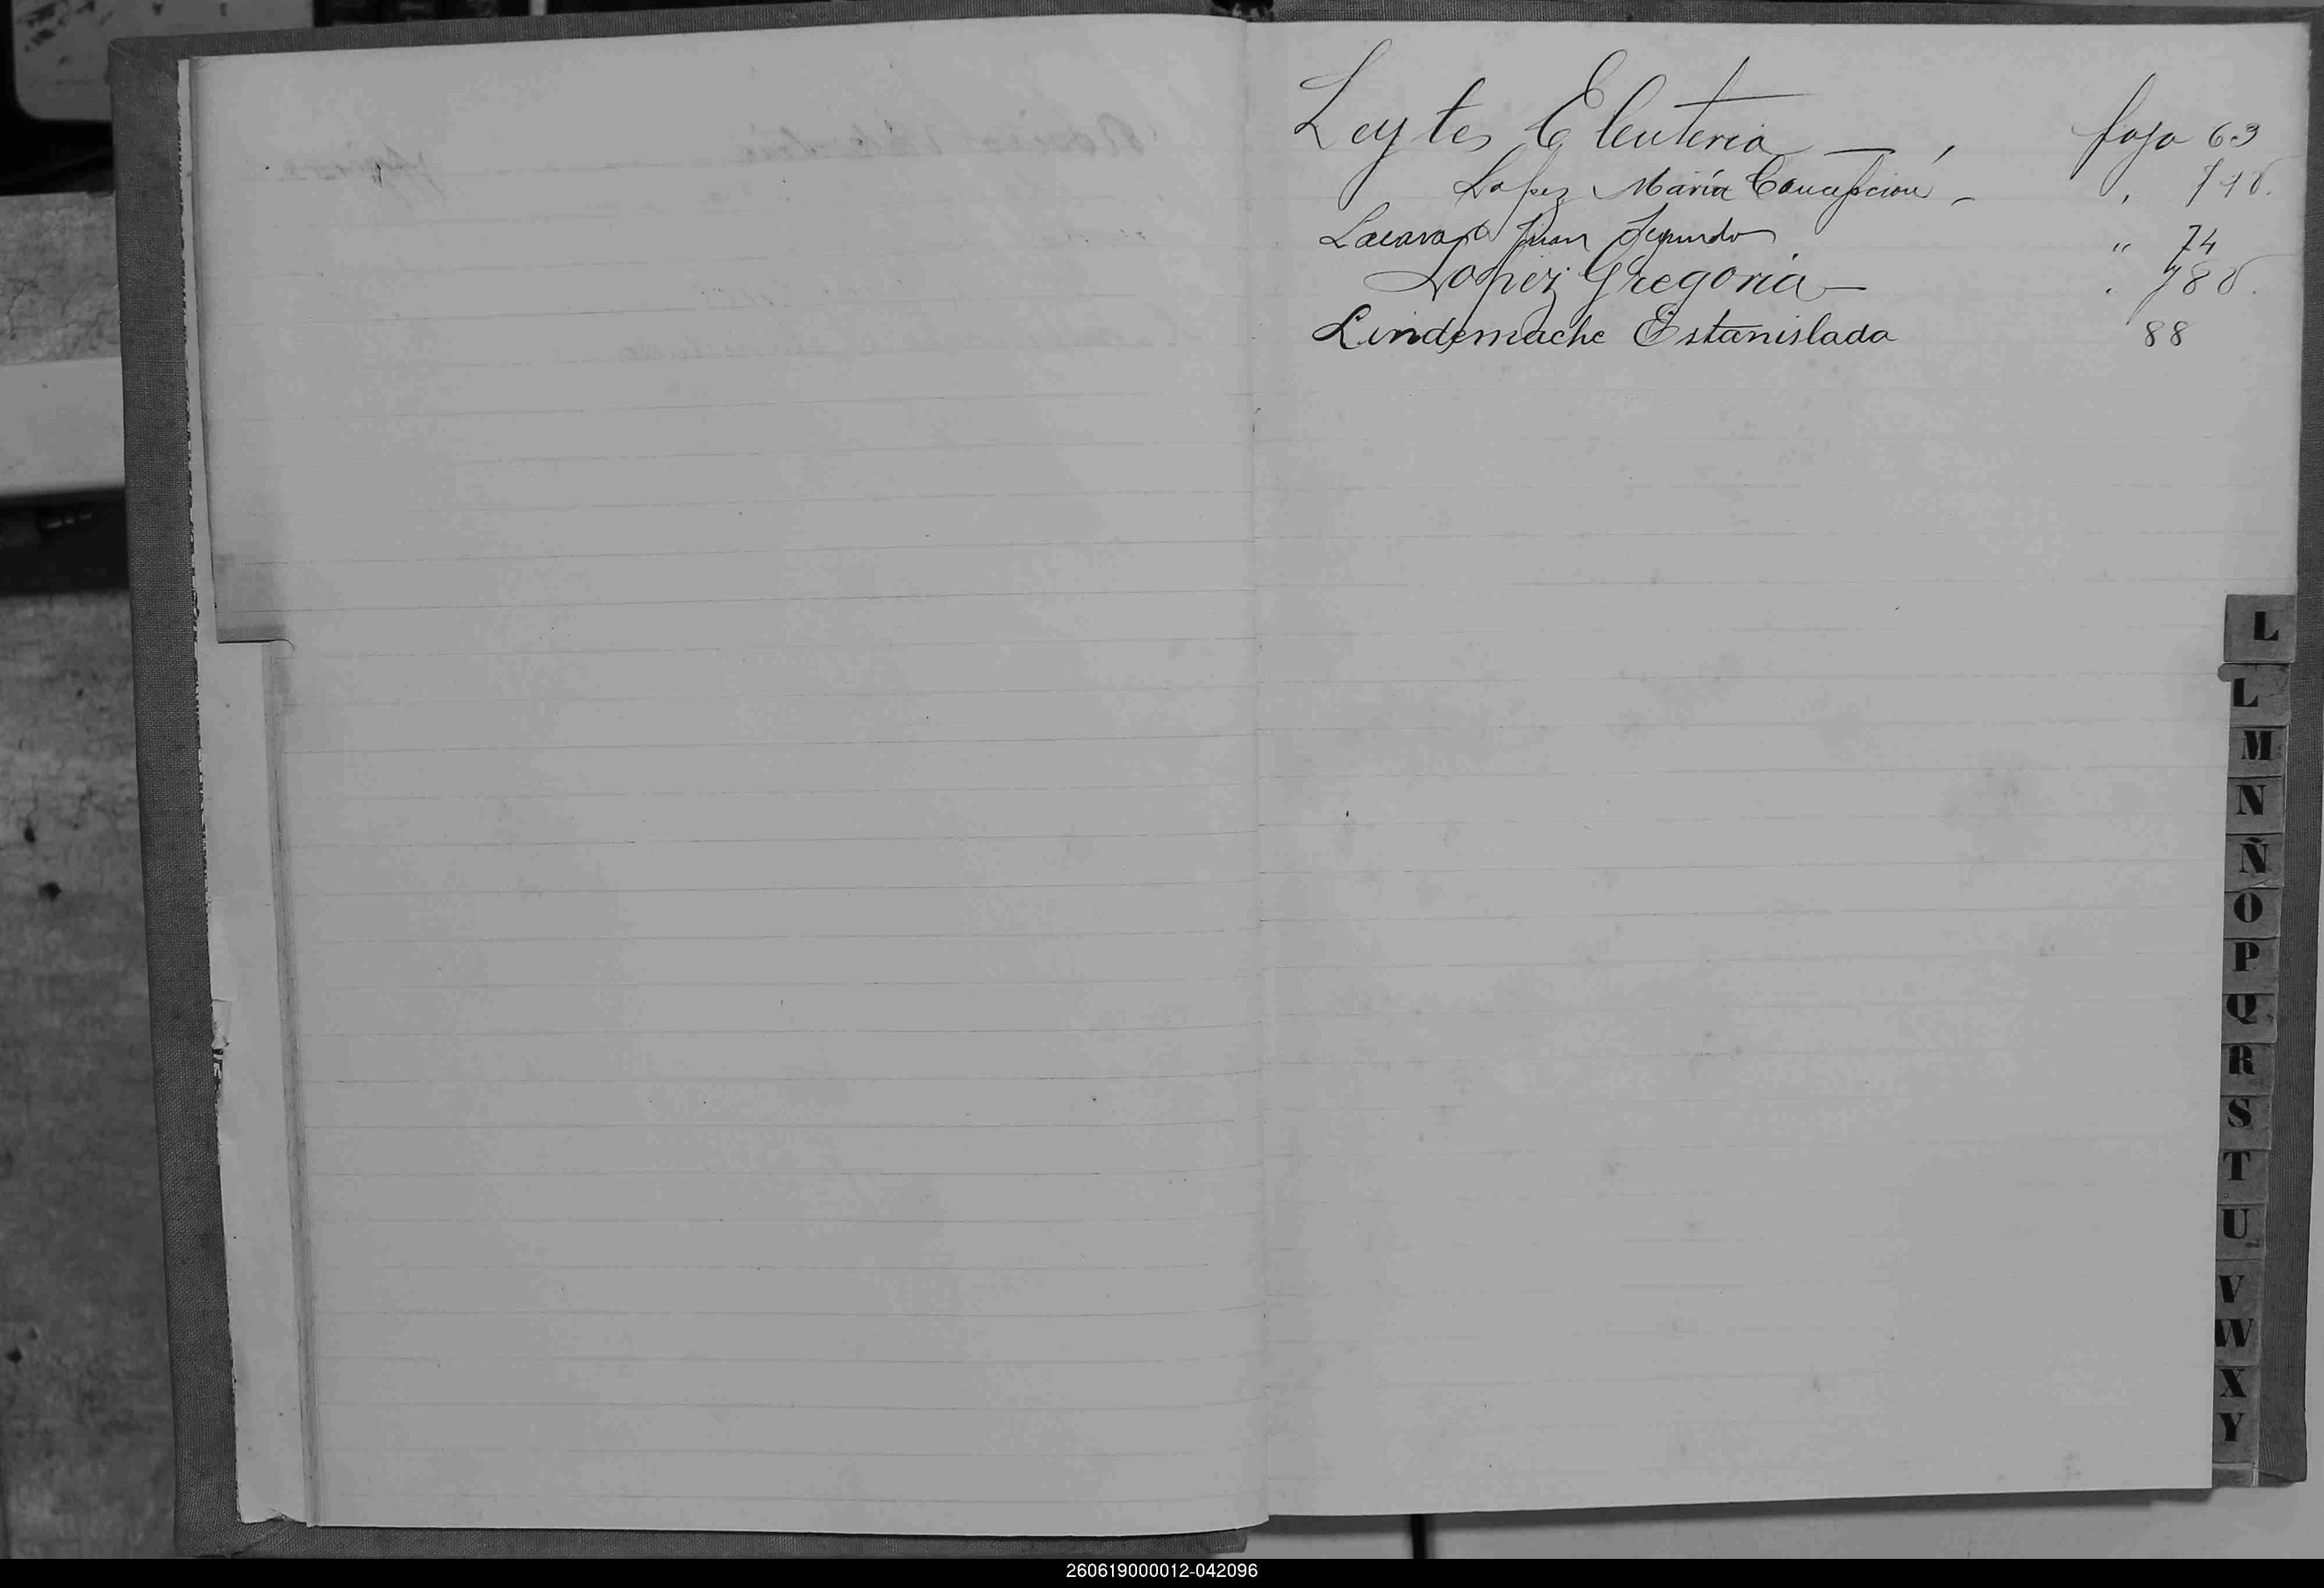 Leytes Eleuteria — , foja 63
Lopez María Concepcion - , 71 v.
Juan Segundo " 74
Lopez Gregoria — . 78 v.
Lindemache Estanislada 88
L
L
M
N
Ñ
O
P
Q
R
S
T
U
V
W
X
Y
260619000012-042096